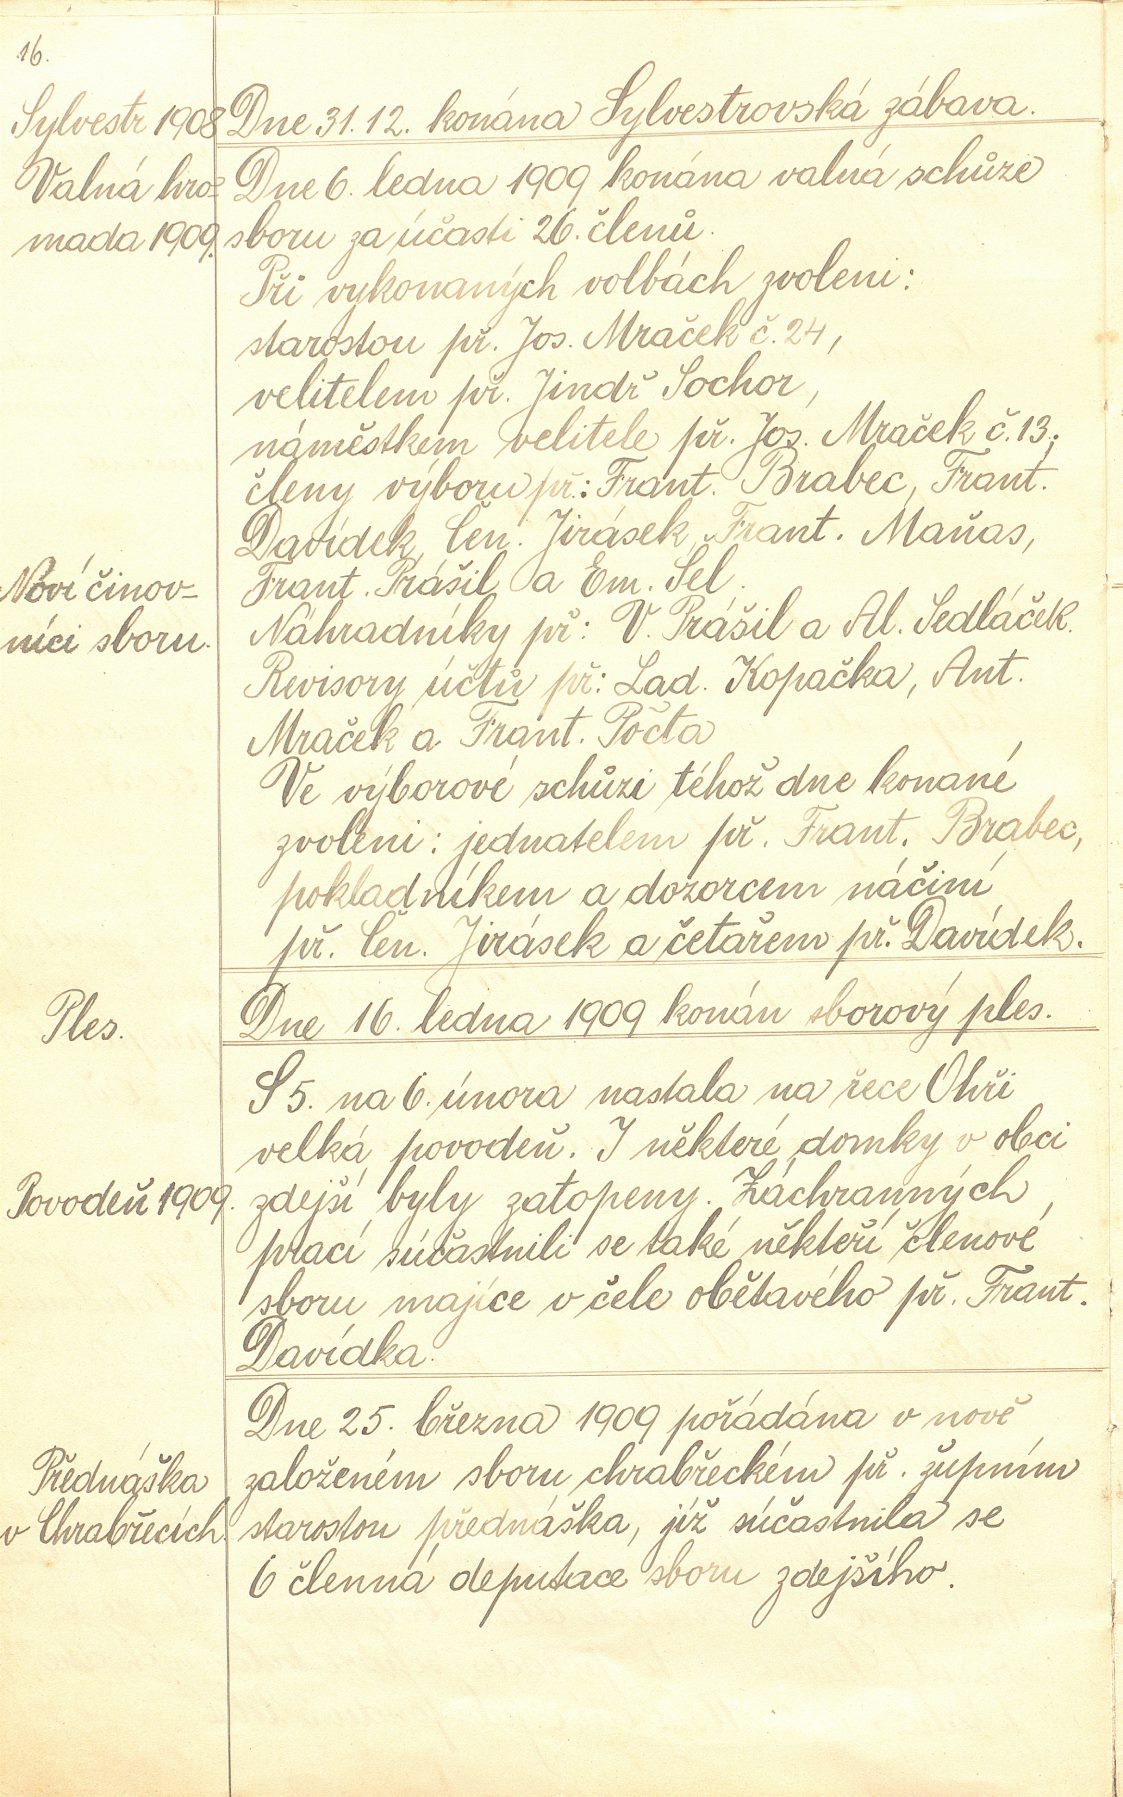 16.
Sylvestr 1908
Dne 31. 12. konána Sylvestrovská zábava.
Valná hro-
mada 1909.
Dne 6. ledna 1909 konána valná schůze
sboru za účasti 26. členů.
Při vykonaných volbách zvoleni:
starostou př. Jos. Mraček č. 24,
velitelem př. Jindř Sochor,
náměstkem velitele př. Jos. Mraček č. 13;
členy výboru př.: Frant. Brabec, Frant.
Davídek, Čen. Jirásek, Frant. Maňas,
Noví činov-
níci sboru.
Frant. Prášil a Em. Šel
Náhradníky př: V. Prášil a Al. Sedláček.
Revisory účtů př: Lad. Kopačka, Ant.
Mraček a Frant. Počta
Ve výborové schůzi téhož dne konané
zvoleni: jednatelem př. Frant. Brabec,
pokladníkem a dozorcem náčiní
př. Čen. Jirásek a četařem př. Davídek.
Ples.
Dne 16. ledna 1909 konán sborový ples.
Povodeň 1909.
S 5. na 6. února nastala na řece Ohři
velká povodeň. I některé domky v obci
zdejší byly zatopeny. Záchranných
prací súčastnili se také někteří členové
sboru majíce v čele obětavého př. Frant.
Davídka.
Přednáška
v Chrabřecích
Dne 25. března 1909 pořádána v nově
založeném sboru chrabřeckém př. župním
starostou přednáška, jíž súčastnila se
6 členná deputace sboru zdejšího.